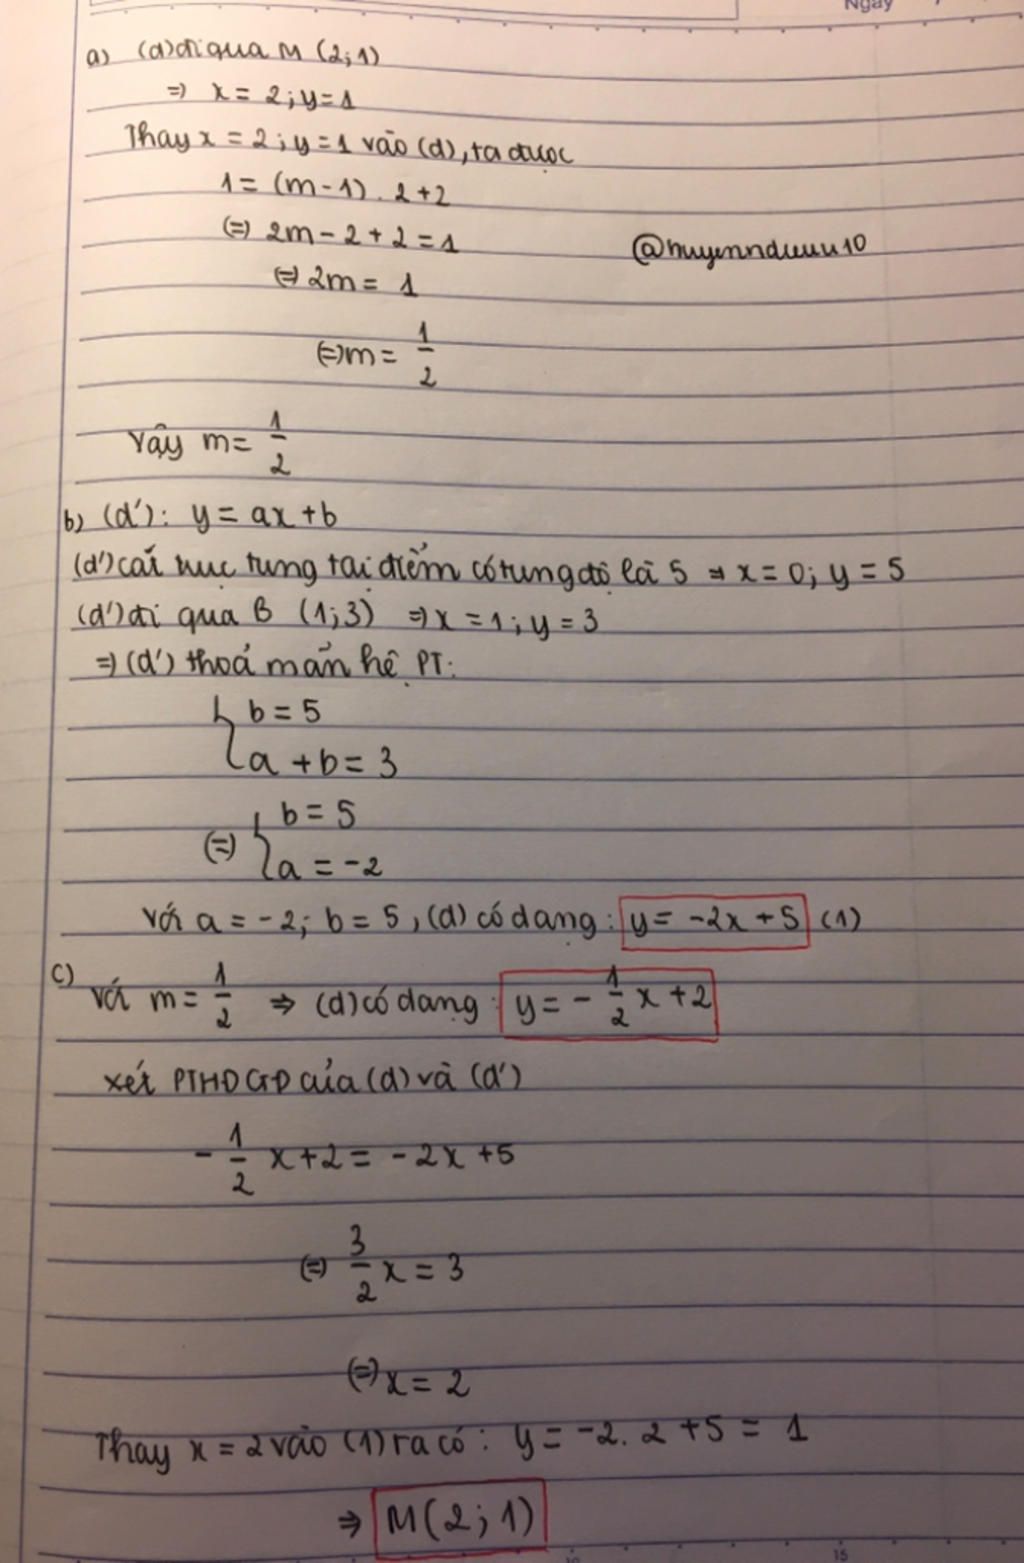 Ngày
a) (d) đi qua M (2;1)
⇒ x = 2; y = 1
Thay x = 2; y = 1 vào (d), ta được
1 = (m - 1) . 2 + 2
(=) 2m - 2 + 2 = 1
@huyenndieuu10
(=) 2m = 1
(=) m = 1/2
Vậy m = 1/2
b) (d'): y = ax + b
(d') cắt trục tung tại điểm có tung độ là 5 ⇒ x = 0; y = 5
(d') đi qua B (1;3) ⇒ x = 1; y = 3
⇒ (d') thoả mãn hệ PT:
{ b = 5
a + b = 3
(=) { b = 5
a = -2
Với a = -2; b = 5, (d) có dạng: y = -2x + 5 (1)
c) Với m = 1/2 ⇒ (d) có dạng: y = - 1/2 x + 2
xét PTHDGD của (d) và (d')
- 1/2 x + 2 = - 2x + 5
(=) 3/2 x = 3
(=) x = 2
Thay x = 2 vào (1) ta có: y = -2. 2 + 5 = 1
⇒ M(2; 1)
15